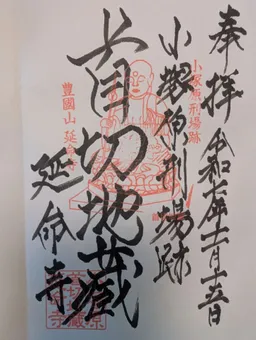 奉拝 令和年十一月十五日
小塚原刑場跡
小塚原刑場跡
首切地蔵
豊國山 延命寺
延命寺